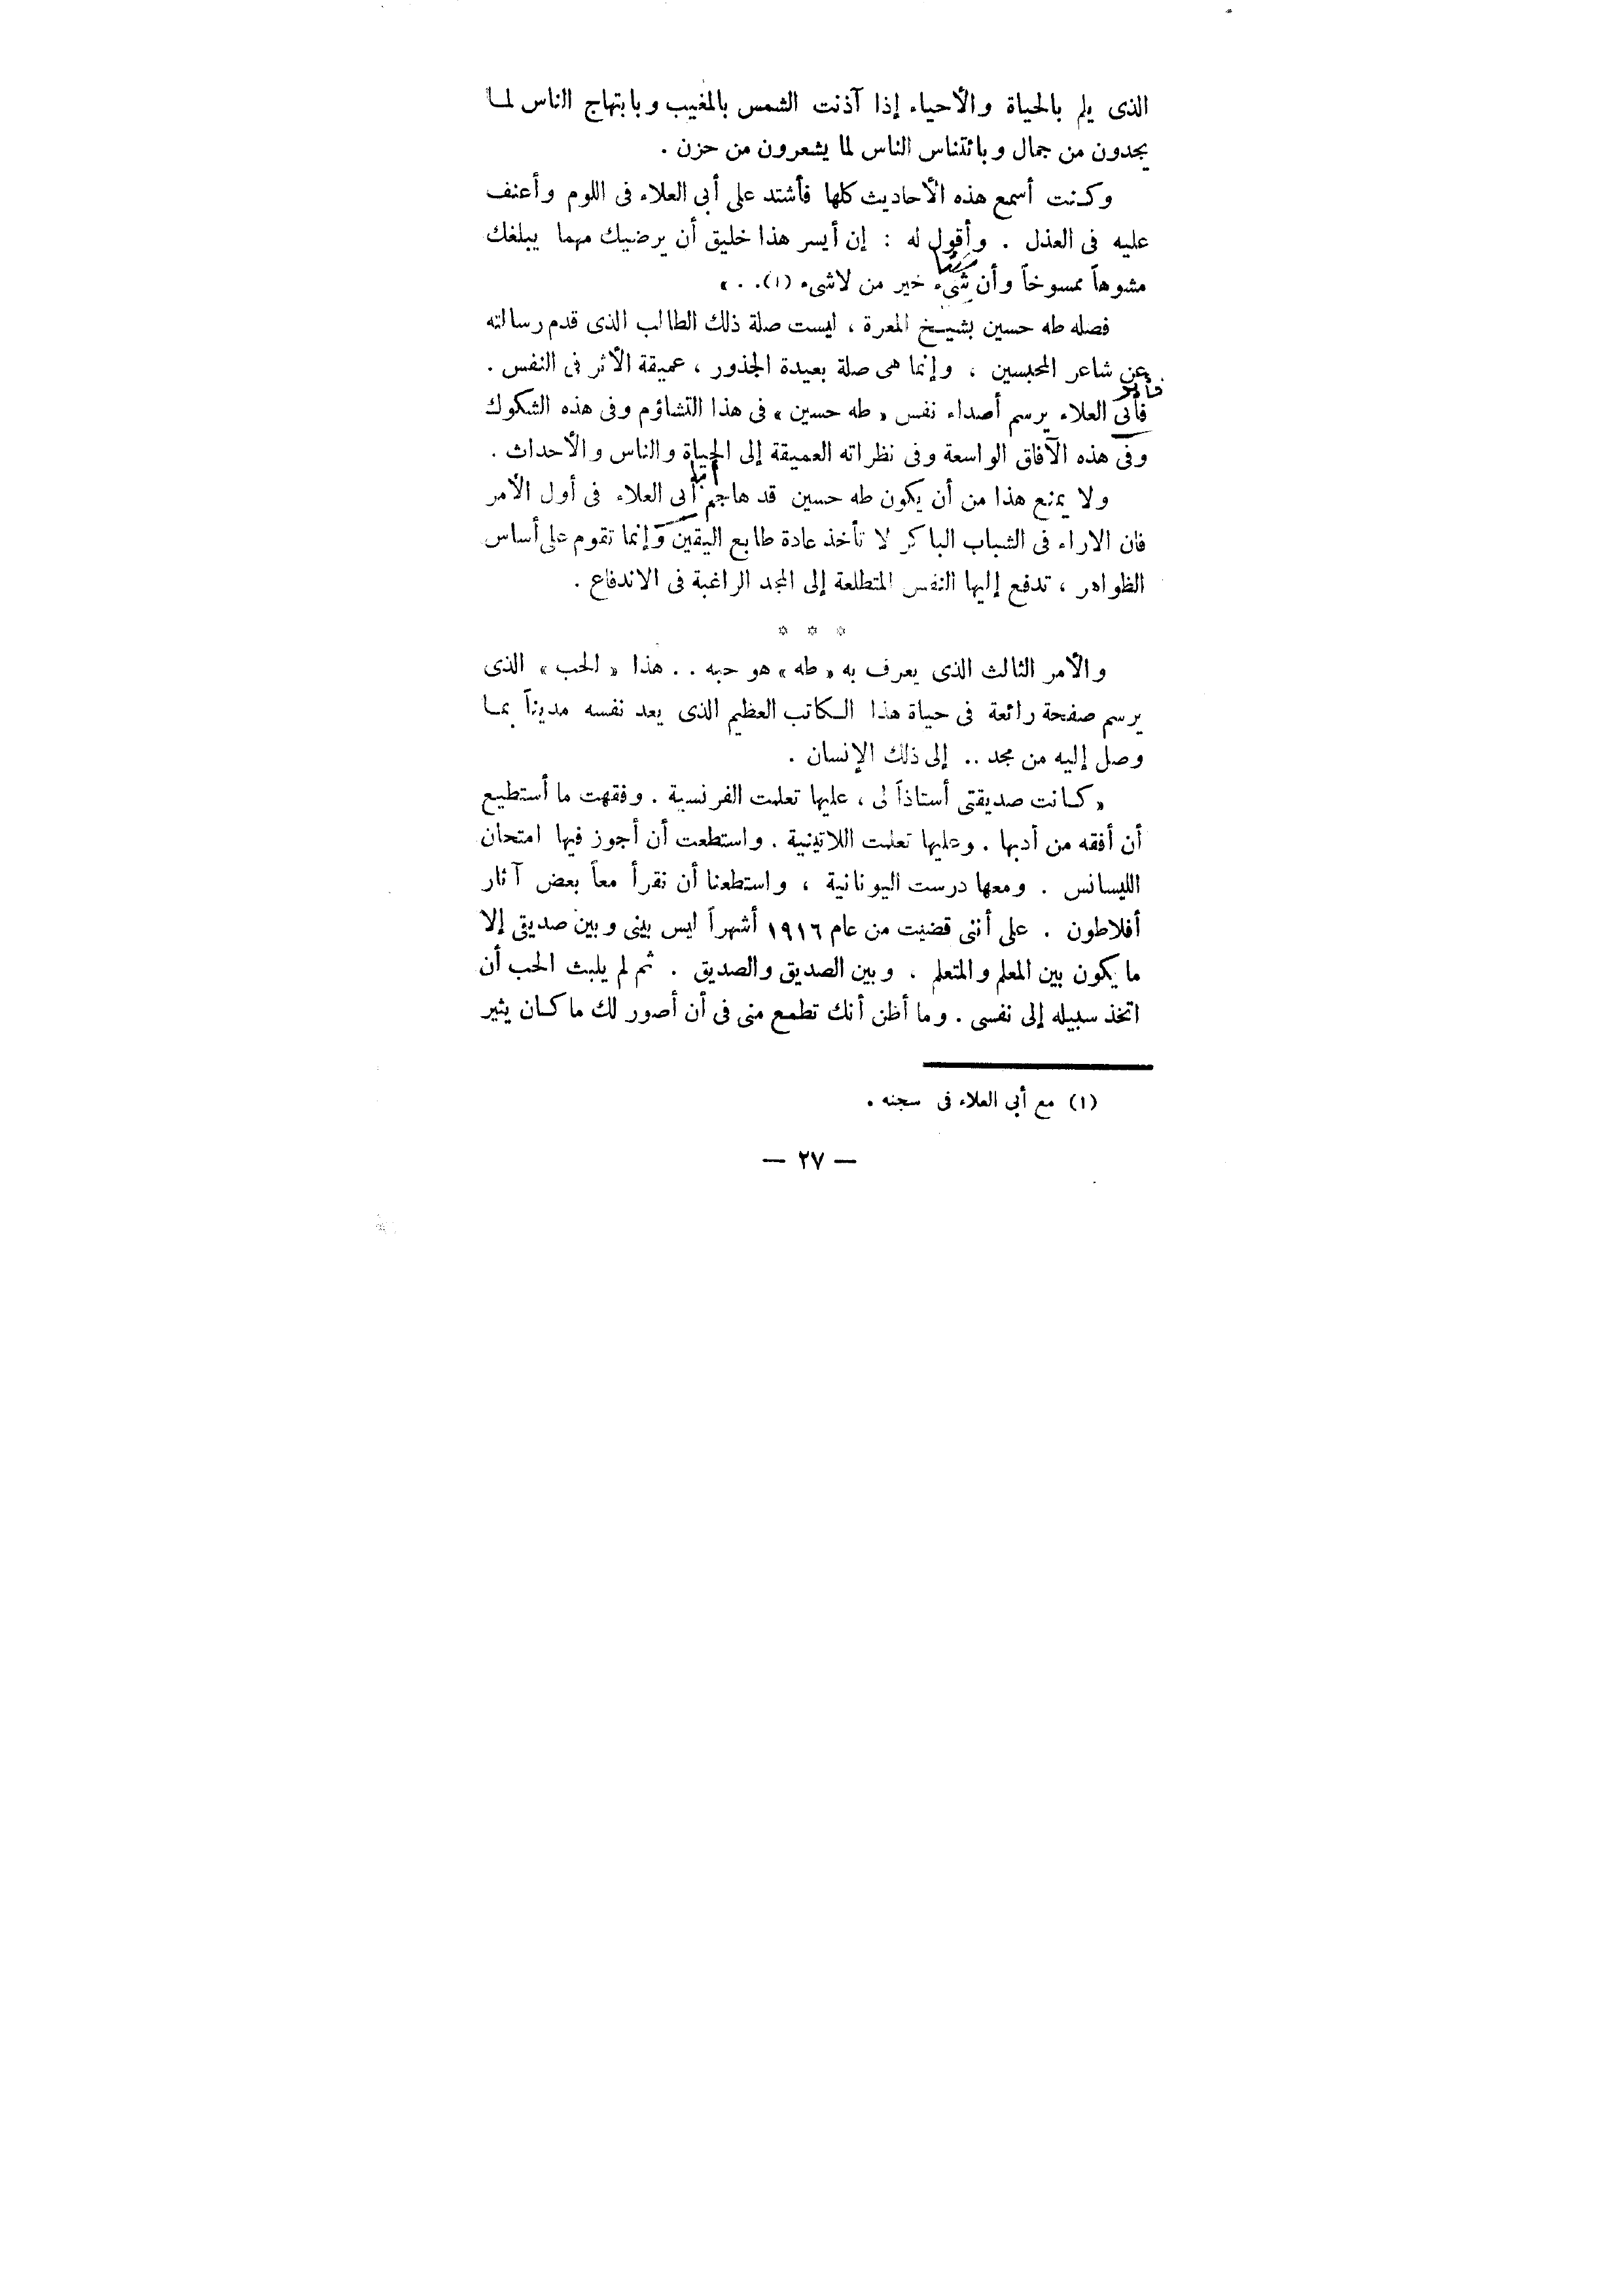 الذى يلم بالحياة والأحياء إذا آذنت الشمس بالمغيب وبابتهاج الناس لما
يجدون من جمال وبائتناس الناس لما يشعرون من حزن .
وكنت أسمع هذه الأحاديث كلها فأشتد على أبى العلاء فى اللوم وأعنف
عليه فى العذل . وأقول له : إن أيسر هذا خليق أن يرضيك مهما يبلغك
شيئا
مشوهاً ممسوخاً وأن شىء خير من لاشىء (١). . »
فصله طه حسين بشيخ المعرة ، ليست صلة ذلك الطالب الذى قدم رسالته
عن شاعر المحبسين ، وإنما هى صلة بعيدة الجذور ، عميقة الأثر فى النفس .
فأبو
فأبى العلاء يرسم أصداء نفس « طه حسين » فى هذا التشاؤم وفى هذه الشكوك
وفى هذه الآفاق الواسعة وفى نظراته العميقة إلى الحياة والناس والأحداث .
أبا
ولا يمنع هذا من أن يكون طه حسين قد هاجم أبى العلاء فى أول الأمر
فان الاراء فى الشباب الباكر لا تأخذ عادة طابع اليقين وإنما تقوم على أساس
الظواهر ، تدفع إليها النفس المتطلعة إلى المجد الراغبة فى الاندفاع .
* * *
والأمر الثالث الذى يعرف به « طه » هو حبه . . هذا « الحب » الذى
يرسم صفحة رائعة فى حياة هذا الكاتب العظيم الذى يعد نفسه مديناً بما
وصل إليه من مجد .. إلى ذلك الإنسان .
« كانت صديقتى أستاذاً لى ، عليها تعلمت الفرنسية . وفقهت ما أستطيع
أن أفقه من أدبها . وعليها تعلمت اللاتينية . واستطعت أن أجوز فيها امتحان
الليسانس . ومعها درست اليونانية ، واستطعنا أن نقرأ معاً بعض آثار
أفلاطون . على أننى قضيت من عام ١٩١٦ أشهراً ليس بينى وبين صديقى إلا
ما يكون بين المعلم والمتعلم . وبين الصديق والصديق . ثم لم يلبث الحب أن
اتخذ سبيله إلى نفسى . وما أظن أنك تطمع منى فى أن أصور لك ما كان يثير
(١) مع أبى العلاء فى سجنه .
— ٢٧ —